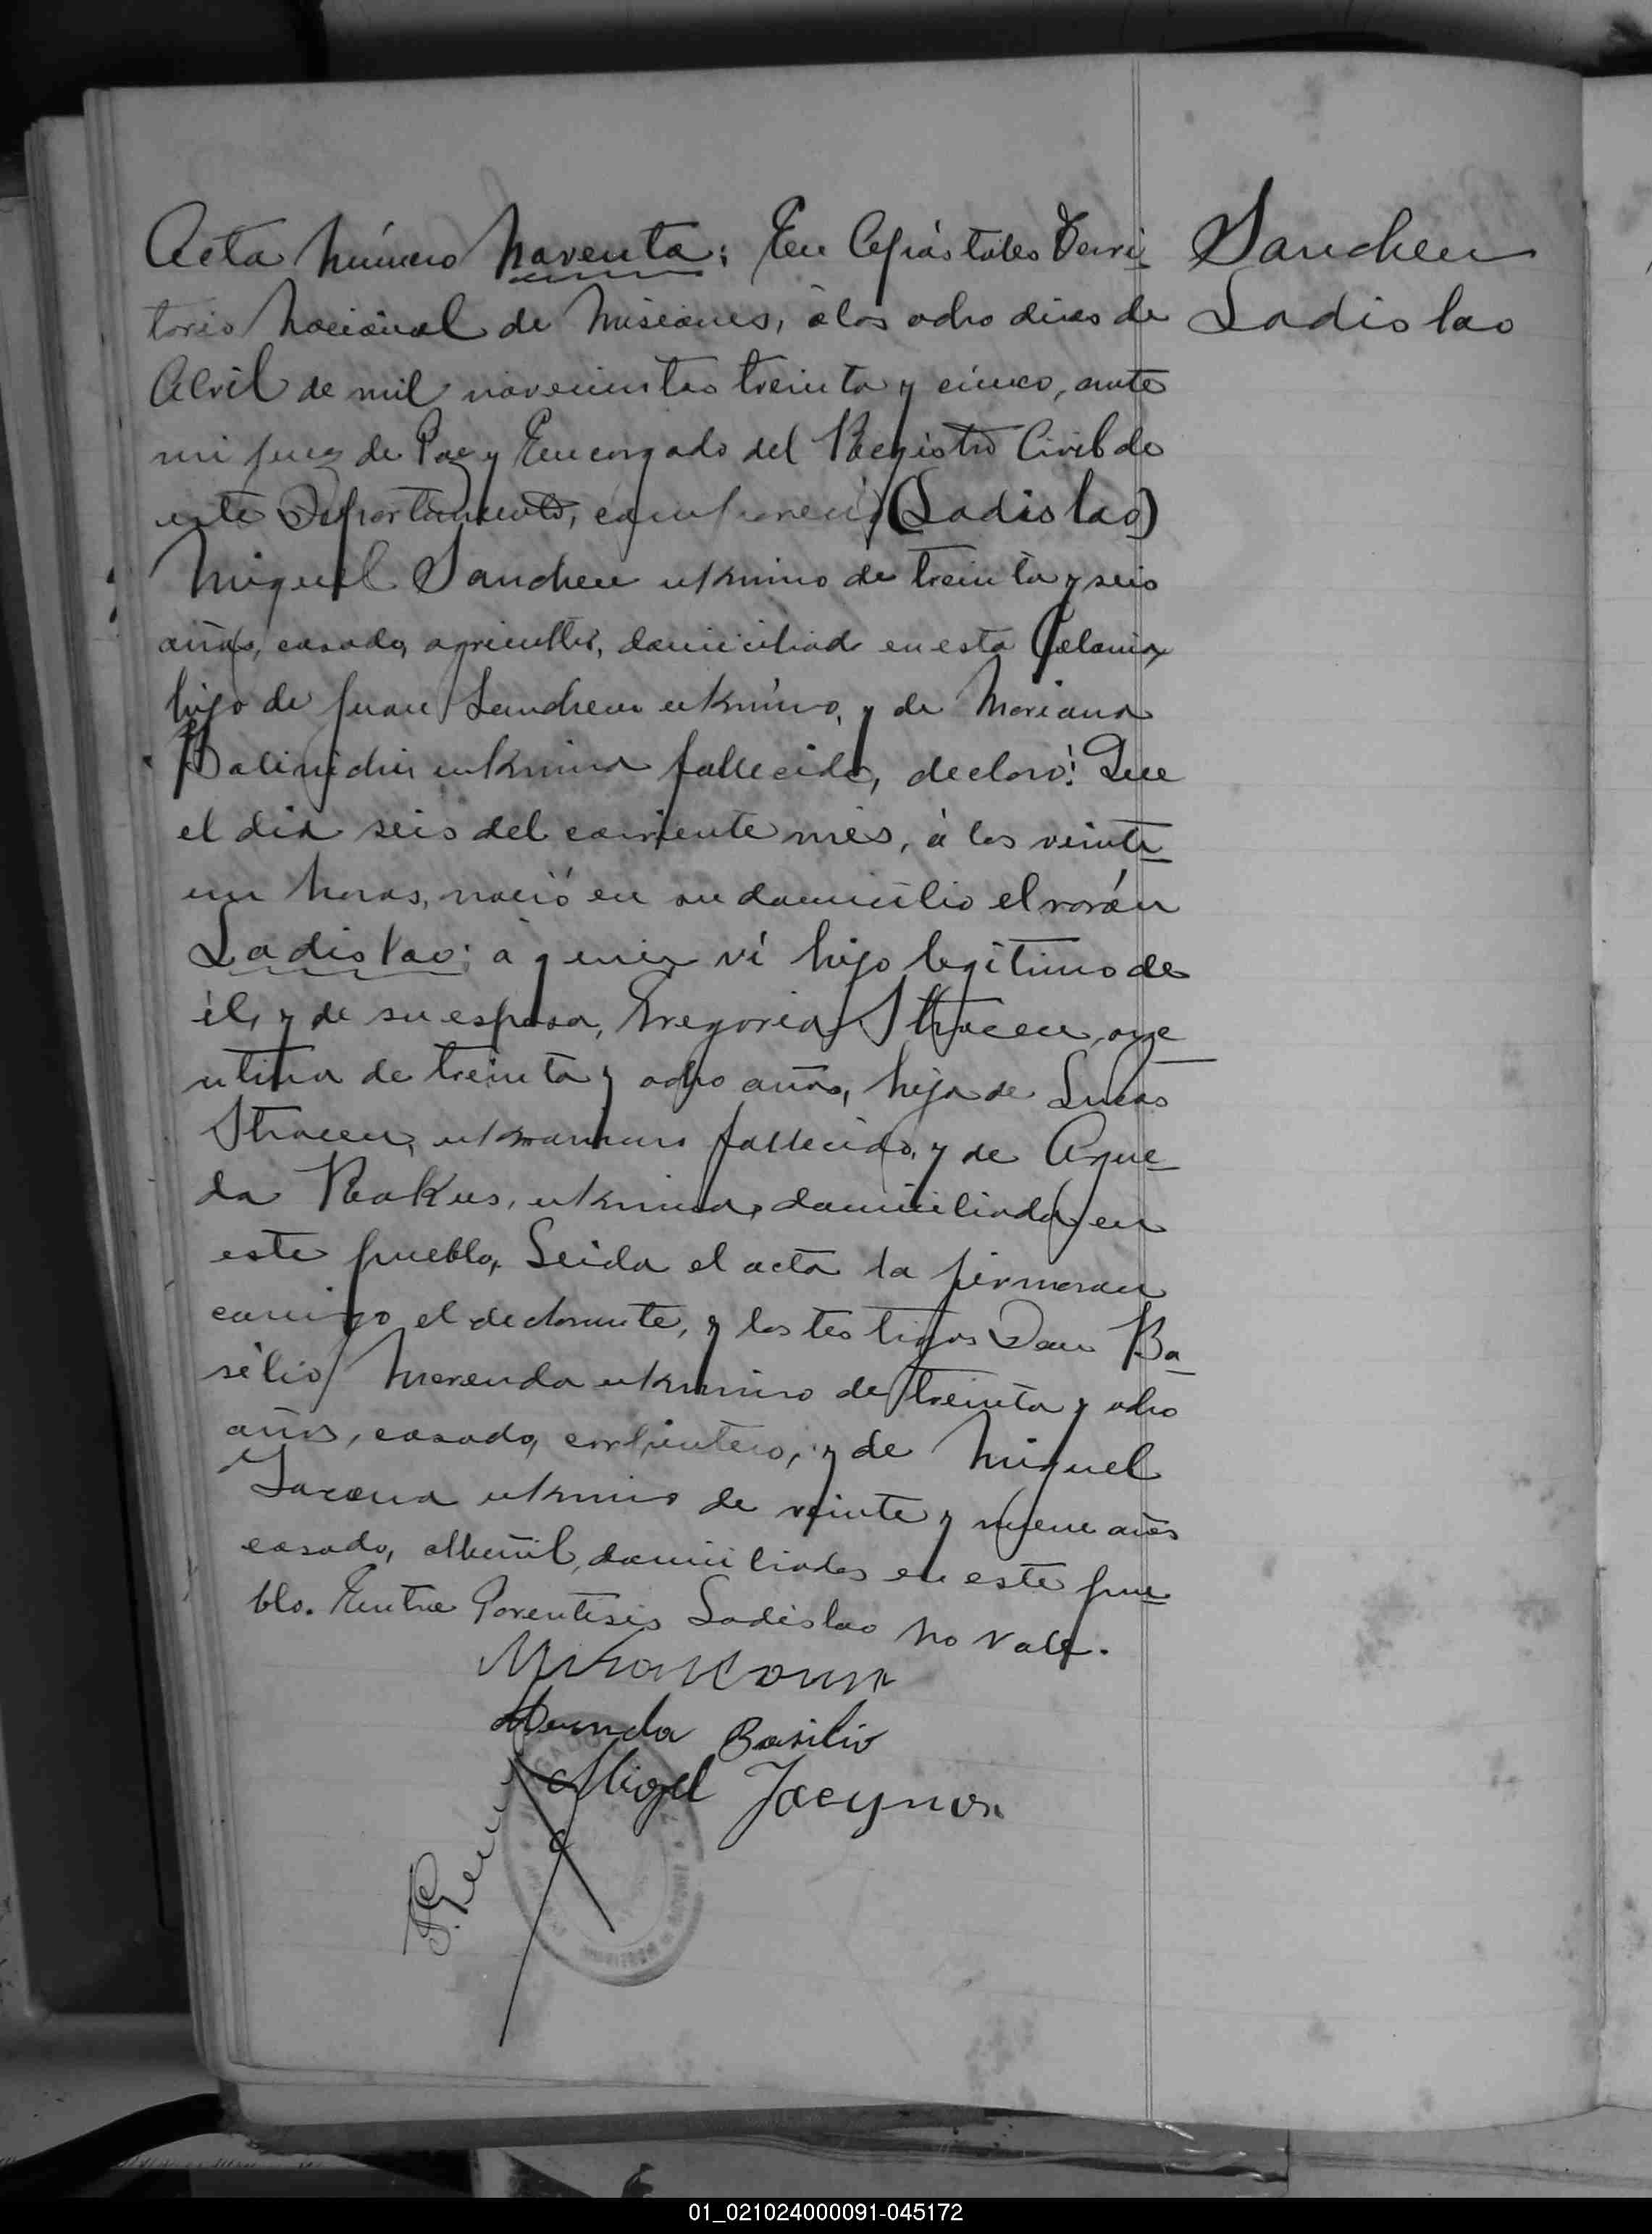 Acta número noventa: En Apóstoles Terri
torio Nacional de Misiones, á los ocho dias de
Abril de mil novecientos treinta y cinco, ante
mi Juez de Paz y Encargado del Registro Civil de
este Departamento, compareció (Ladislao)
Miguel Sanchen ukrnino de treinta y seis
años, casado, agricultor, domiciliado en esta Colonia
hijo de Juan Sanchen ukrnino, y de Mariana
ukrnina fallecida, declaró: Que
el dia seis del corriente mes, á las veinte
un horas, nació en su domicilio el varón
Ladislao: á quien vi hijo legitimo de
él, y de su esposa, Gregoria Stracen, arge
ntina de treinta y ocho años, hija de Lucas
Stracen, ukraniano fallecido, y de Ague
da Rakus, ukrnina, domiciliada en
este pueblo, Leida el acta la firmaran
conmigo el declarante, y los testigos Don Ba
silio Merenda ukrnino de treinta y ocho
años, casado, carpintero, y de Miguel
ukrnino de veinte y nueve años
casado, albañil, domiciliados en este pue
blo. Entre Parentesis Ladislao no vale.
Basilio
Migel
Sanchen
Ladislao
01_021024000091-045172